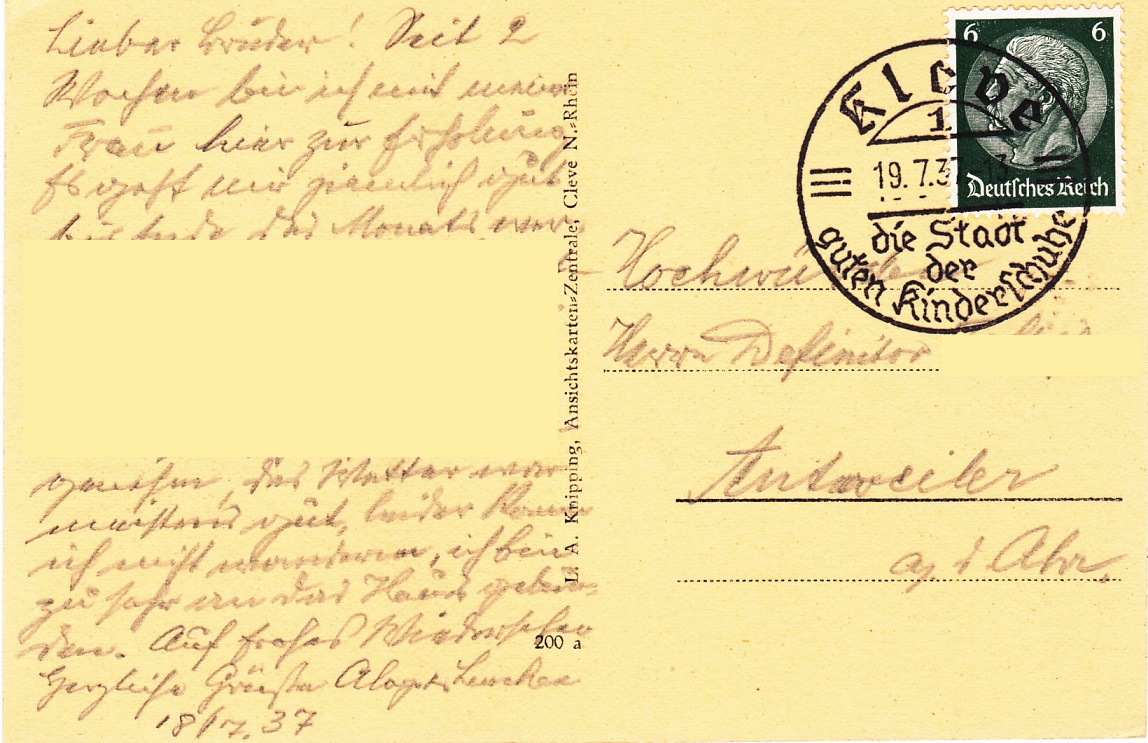 Lieber Bruder! Seit 2
Wochen bin ich mit meiner
Frau hier zur Erholung
Es geht mir ziemlich gut
bis Ende des Monats
das Wetter war
meistens gut, leider kann
ich nicht wandern, ich bin
zu sehr an das Haus gebun-
den. Auf frohes Wiedersehen
Herzliche Grüsse
18/7.37
L. A. Knipping, Ansichtskarten-Zentrale, Cleve N.-Rhein
200 a
6 6
Deutsches Reich
Kleve
1
19.7.37
die Stadt
der
guten Kinderschuhe
Herrn Definitor
Antweiler
a/d Ahr.